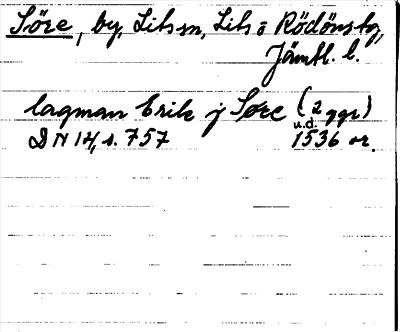 Söre, by, Lits sn, Lits o Rödöns tg,
Jämtl. l.
lagman Erik j Søre (2 ggr)
DN 14, s. 757 u.d. 1536 or.